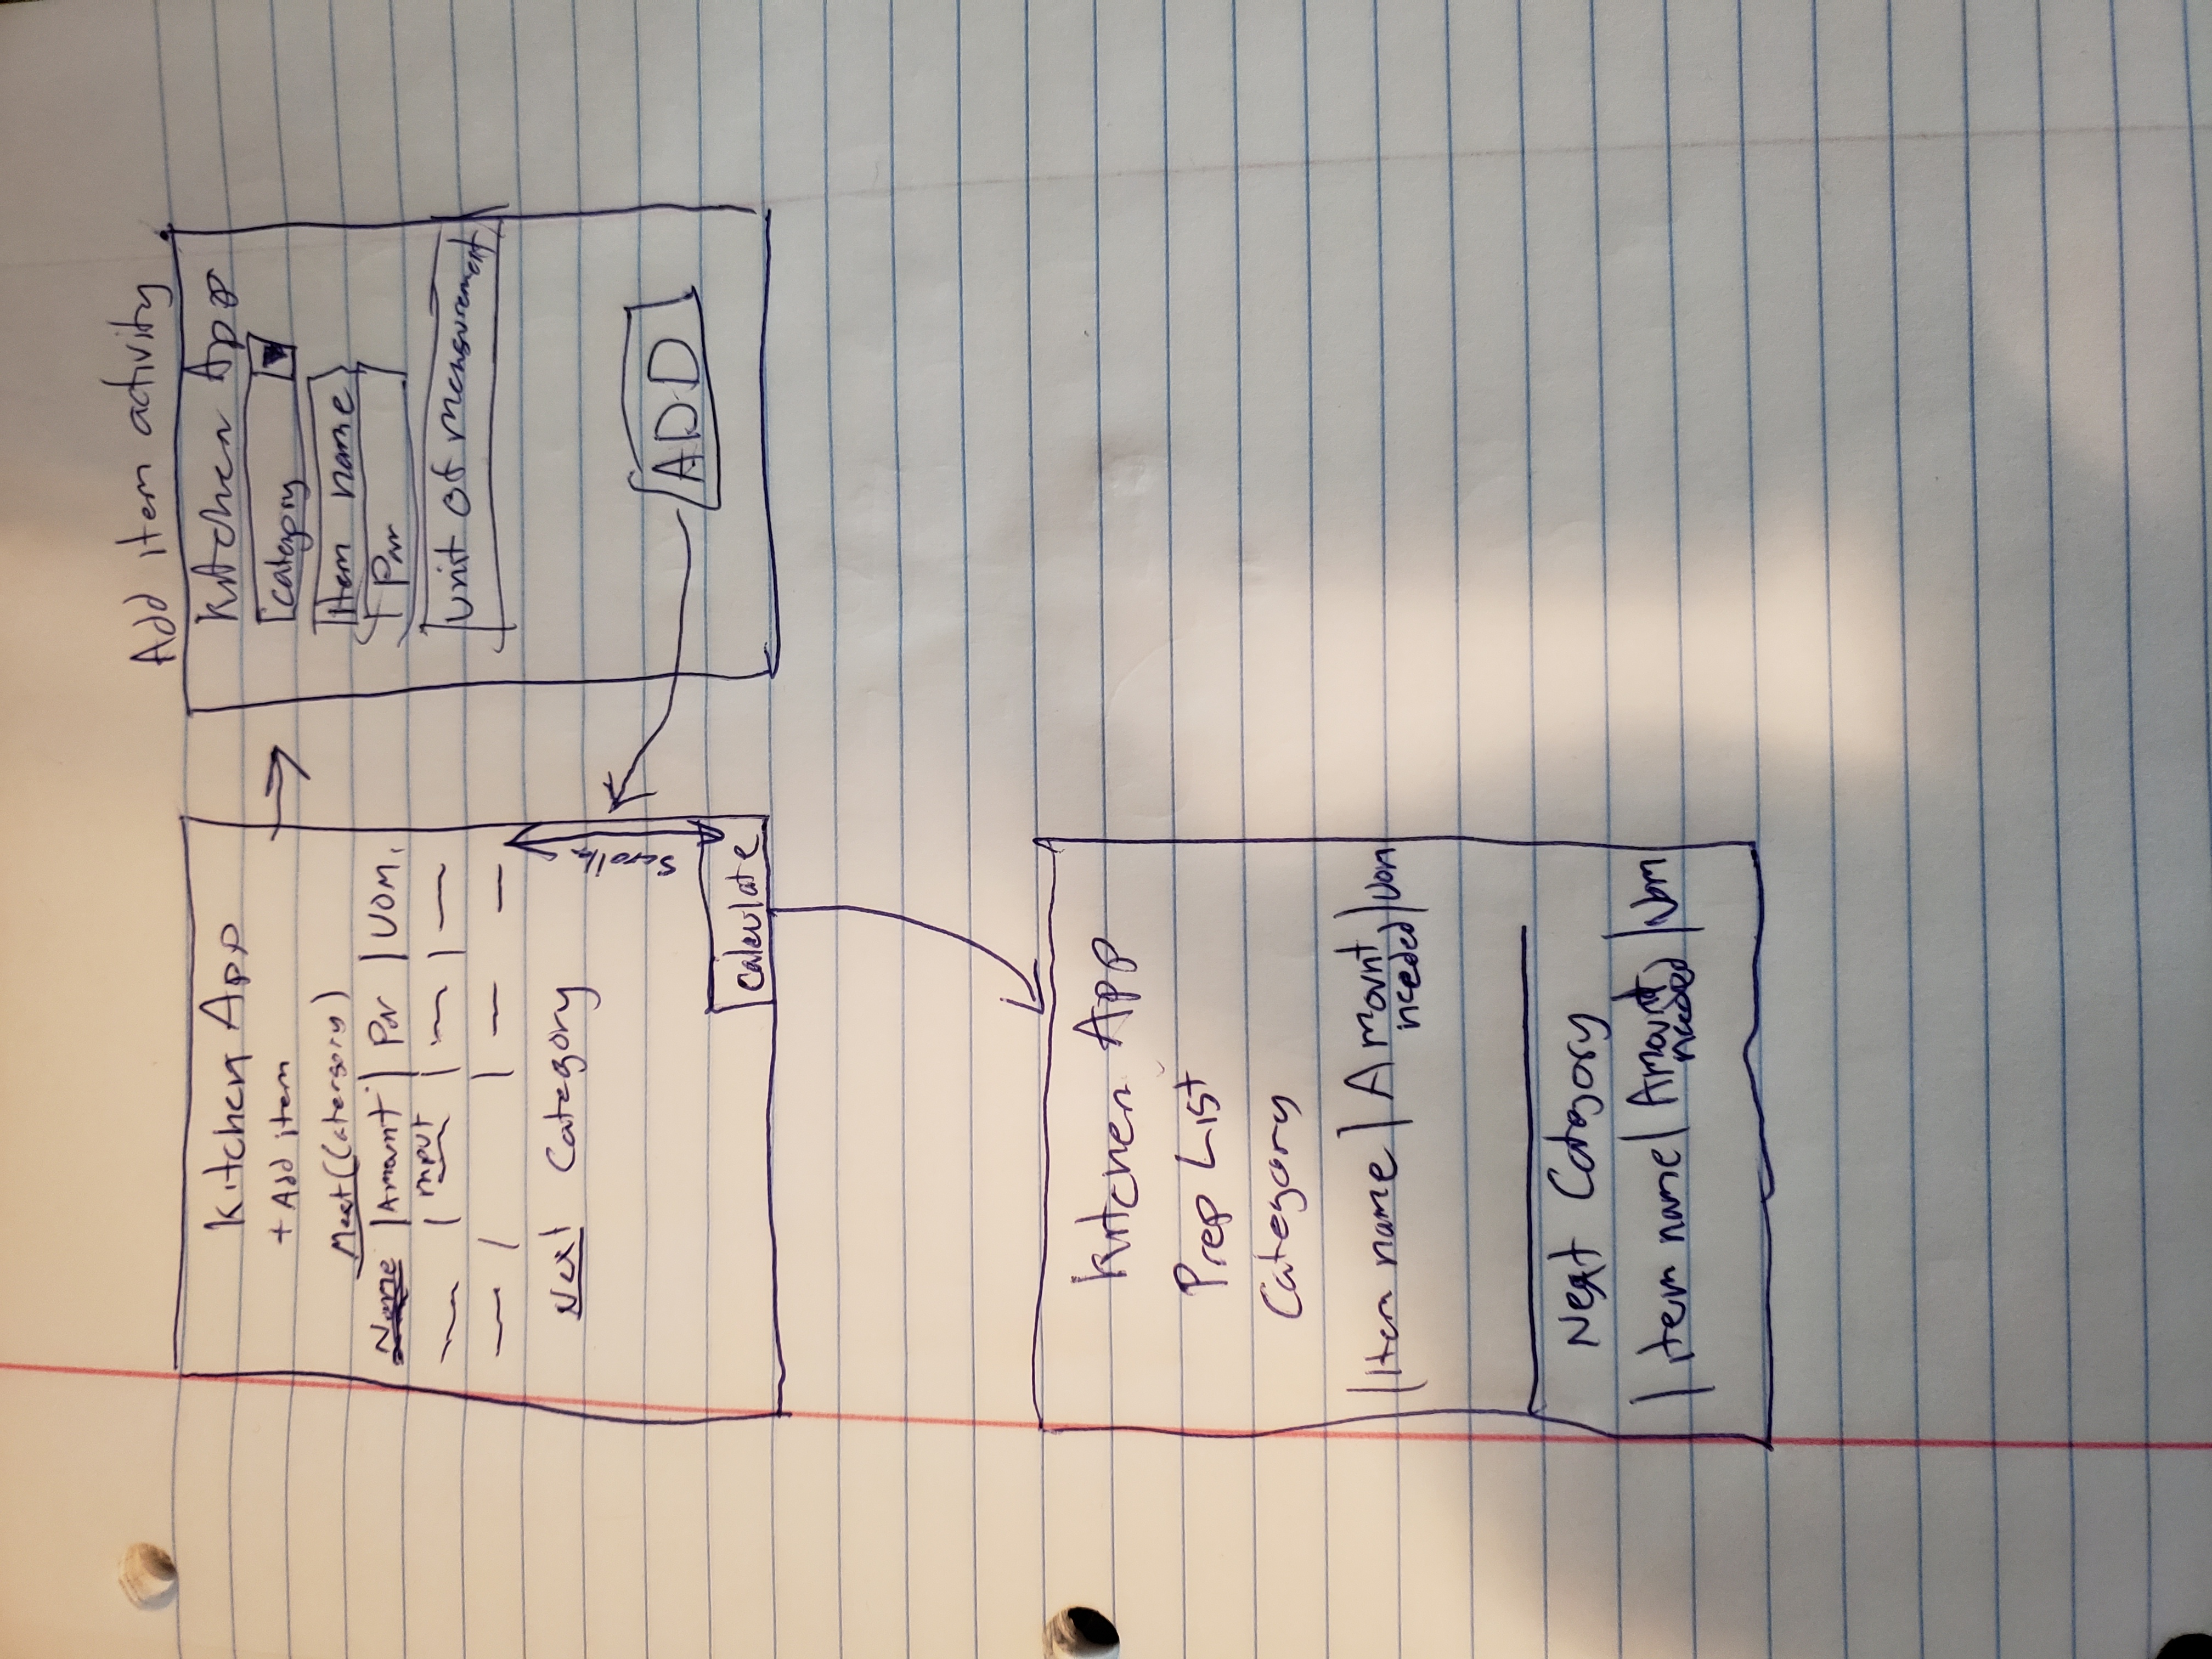 Kitchen App
+ Add item
Meat (Catergory)
Name | Amount | Par | UOM.
input
Next Category
Scroll
Calculate
Add item activity
Kitchen App
Category
Item name
Par
Unit of measurement
ADD
Kitchen App
Prep List
Category
| Item name | Amount needed | Uom
Next Category
| item name | Amount needed | Uom